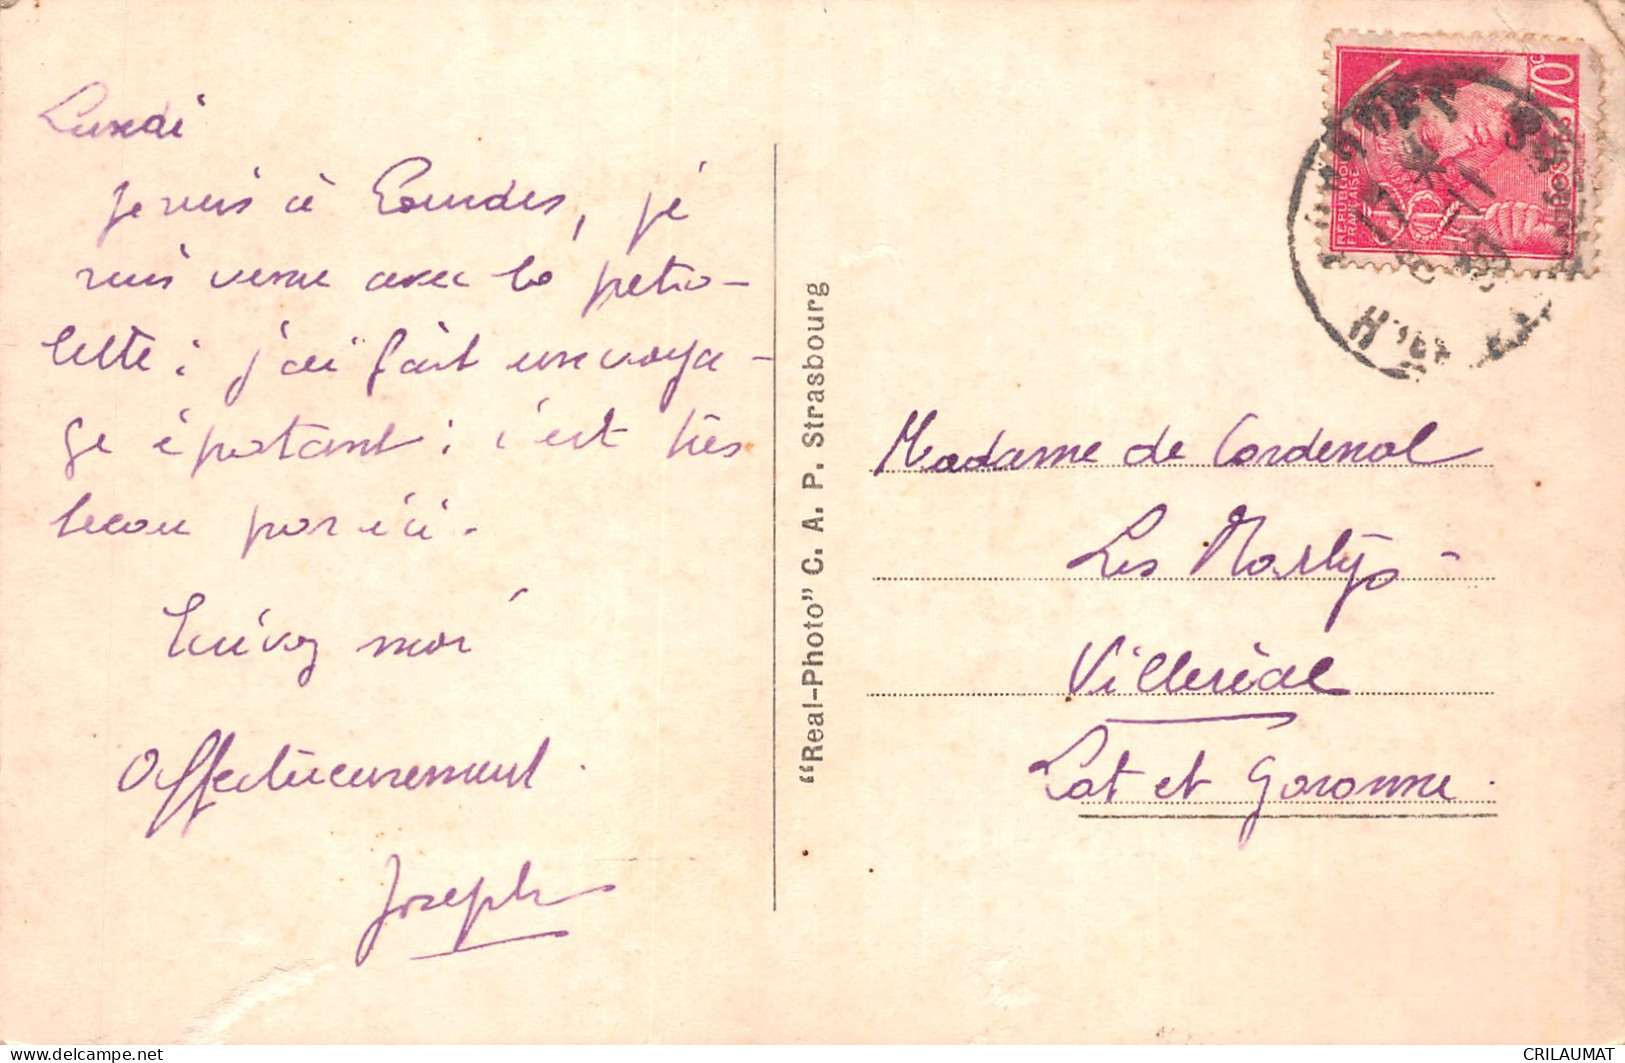 Lundi
je suis à Lourdes, je
suis venu avec la pétro-
lette ; j'ai fait un voya-
ge épatant ; c'est très
beau par ici.
Ecrivez moi
Affectueusement.
Joseph
"Real-Photo" C. A. P. Strasbourg
70c
REPUBLIQUE
FRANÇAISE
POSTES
17
-11
39
Madame de Cardenal
Les Martys -
Villeréal
Lot et Garonne.
CRILAUMAT